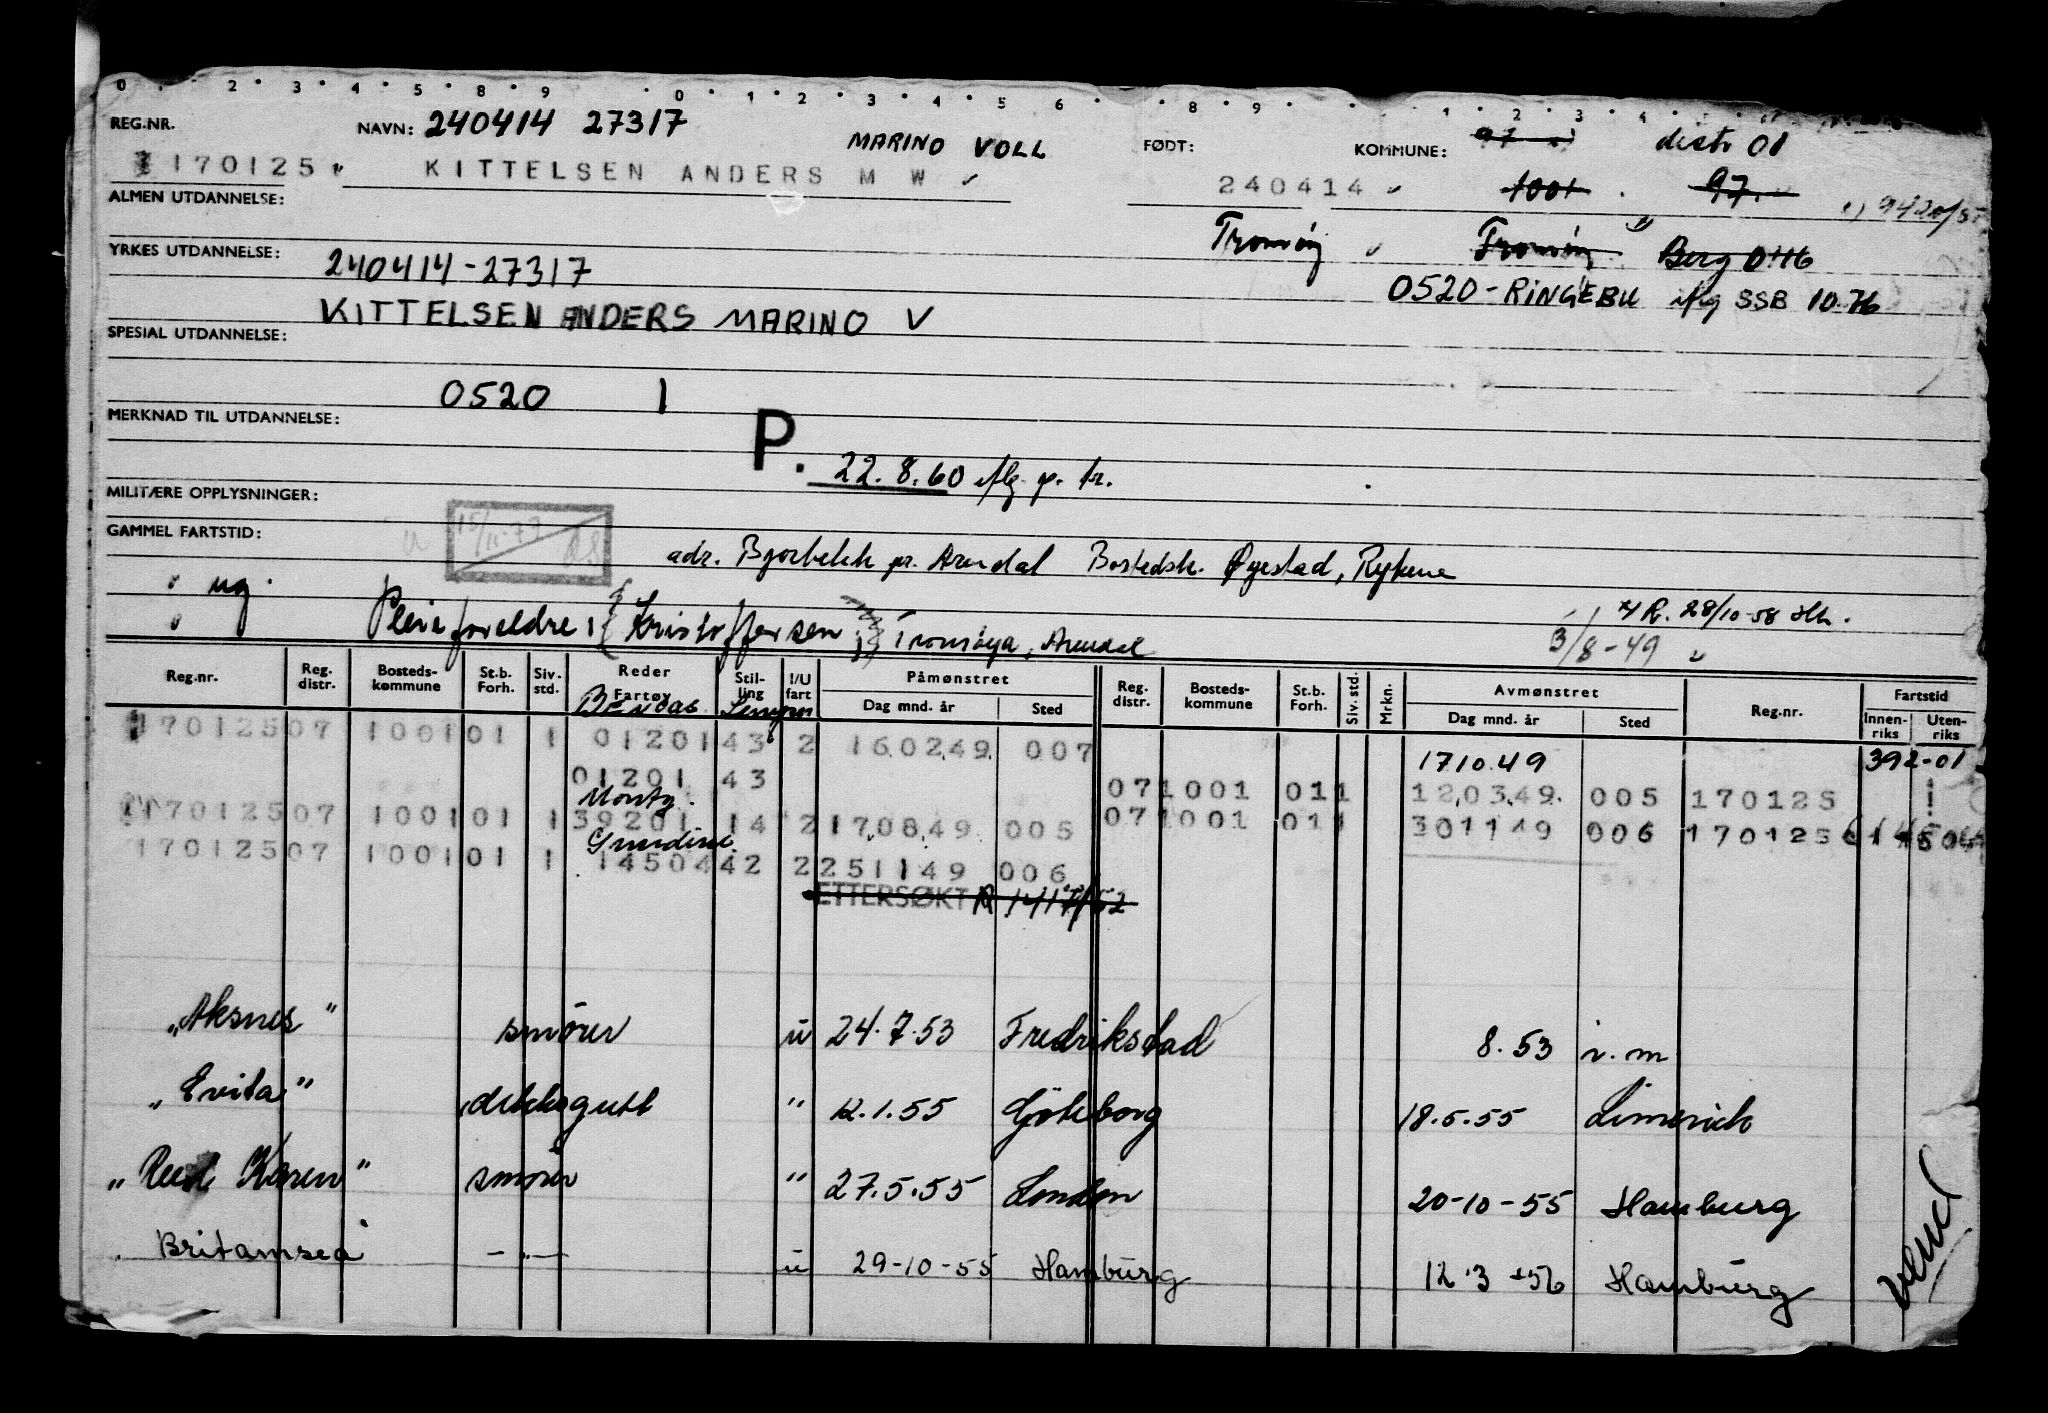 0 2 3 4 5 8 9 0 1 2 3 4 5 6 8 9 1 2 3 4
REG.NR. NAVN: 240414 27317 MARINO VOLL FØDT: KOMMUNE: 97 distr 01
170125 KITTELSEN ANDERS M W 240414 1001 97.
ALMEN UTDANNELSE: 9420/55
Tromøy Tromøy Berg 0116
YRKES UTDANNELSE: 240414-27317
0520-RINGEBU iflg SSB 10.76
KITTELSEN ANDERS MARINO V
SPESIAL UTDANNELSE:
0520 1
MERKNAD TIL UTDANNELSE:
P. 22.8.60 iflg. p. kr.
MILITÆRE OPPLYSNINGER:
GAMMEL FARTSTID:
adr. Bjorbekk pr. Arendal Bostedsk. Øyestad, Rykene
" ug.
Pleieforeldre: Kristoffersen, Tromøya, Arendal
R. 28/10-58
3/8-49
Reg.nr. Reg. distr. Bosteds-kommune St.b. Forh. Siv. std. Reder Fartøy Stil-ling I/U fart Påmønstret Dag mnd. år Sted Reg. distr. Bosteds-kommune St.b. Forh. Siv. std. Mrkn. Avmønstret Dag mnd. år Sted Reg.nr. Fartstid Innen-riks Uten-riks
170125 07 1001 01 1 01201 43 2 160249 007 171049 392-01
01201 43 07 1001 01 1 120349 005 170125
Montg.
170125 07 1001 01 1 39201 14 2 170849 005 07 1001 01 1 301149 006 170125
Gundine
170125 07 1001 01 1 14504 42 2 251149 006
ETTERSØKT R 1417/52
"Aksnes" smører u 24.7.53 Fredrikstad 8.53 i.m
"Evita" dekksgutt " 12.1.55 Göteborg 18.5.55 Limerick
"Karen" smører " 27.5.55 London 20-10-55 Hamburg
Britamsea - " - u 29-10-55 Hamburg 12.3-56 Hamburg
vend